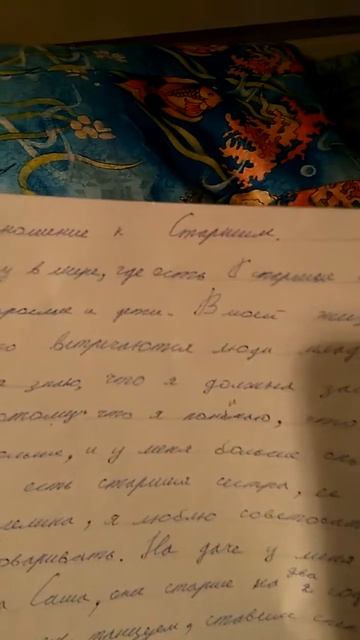 ношение к Старшим.
у в мире, где есть старшие
рослые и дети. В моей жиз
го встречаются люди млад
я знаю, что я должна за
отому что я понимаю, что
ольше, и у меня больше оп
есть старшая сестра, ее
лелина, я люблю советоват
оваривать. На даче у меня
а Саша, она старше на два 2 год
танцуем, ставим спе